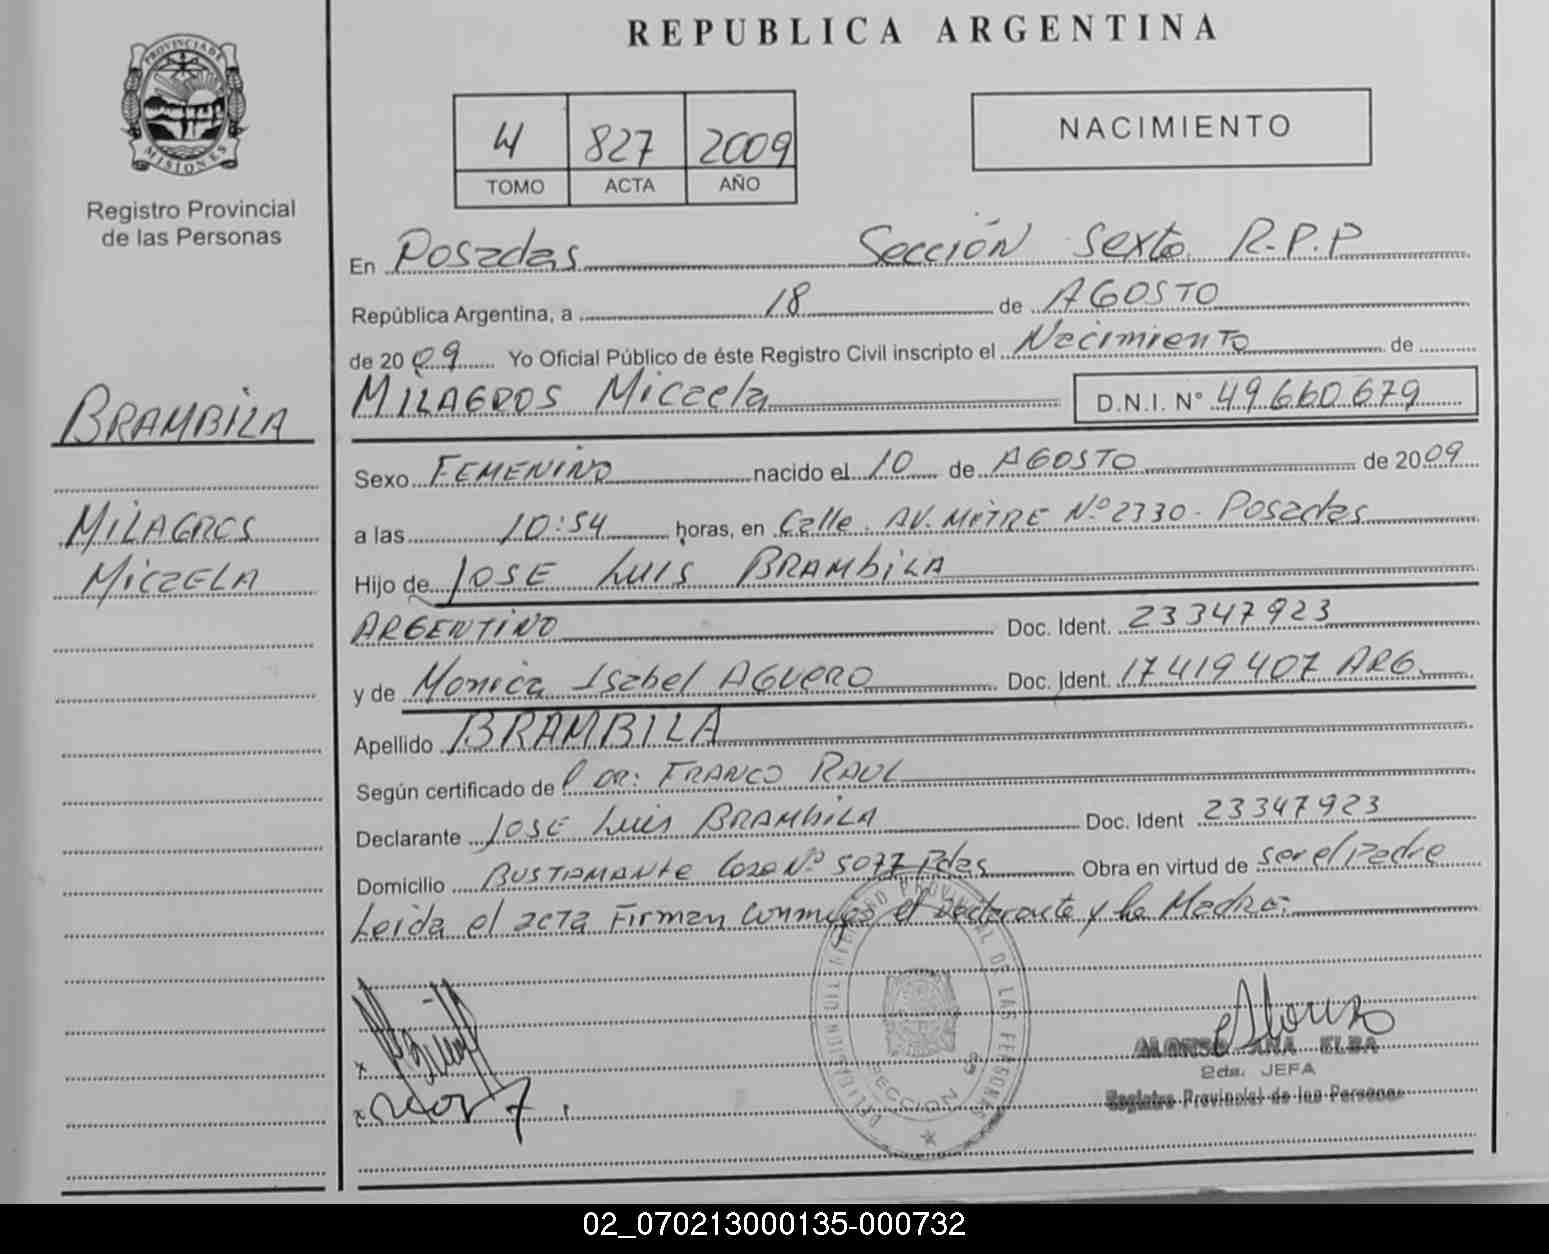 REPUBLICA ARGENTINA
PROVINCIA DE
MISIONES
Registro Provincial
de las Personas
4 827 2009
TOMO ACTA AÑO
NACIMIENTO
En Posadas Sección Sexta R.P.P
República Argentina, a 18 de AGOSTO
de 2009 Yo Oficial Público de éste Registro Civil inscripto el Nacimiento de
MILAGROS Micaela D.N.I. N° 49.660.679
BRAMBILA
MILAGROS
MICAELA
Sexo FEMENINO nacido el 10 de AGOSTO de 2009
a las 10:54 horas, en Calle. AV. MITRE Nº 2330 - Posadas
Hijo de JOSE LUIS BRAMBILA
ARGENTINO Doc. Ident. 23347923
y de Monica Isabel AGUERO Doc. Ident. 17419407 ARG.
Apellido BRAMBILA
Según certificado de DR: FRANCO RAUL
Declarante JOSE Luis BRAMBILA Doc. Ident 23347923
Domicilio BUSTAMANTE Nº 5077 Pdas Obra en virtud de ser el padre
Leida el acta Firman Conmigo el Declarante y la Madre.
DELEGACION DEL REGISTRO PROVINCIAL DE LAS PERSONAS
SECCION 6ª
ALONSO ANA ELBA
2da. JEFA
Registro Provincial de las Personas
02_070213000135-000732